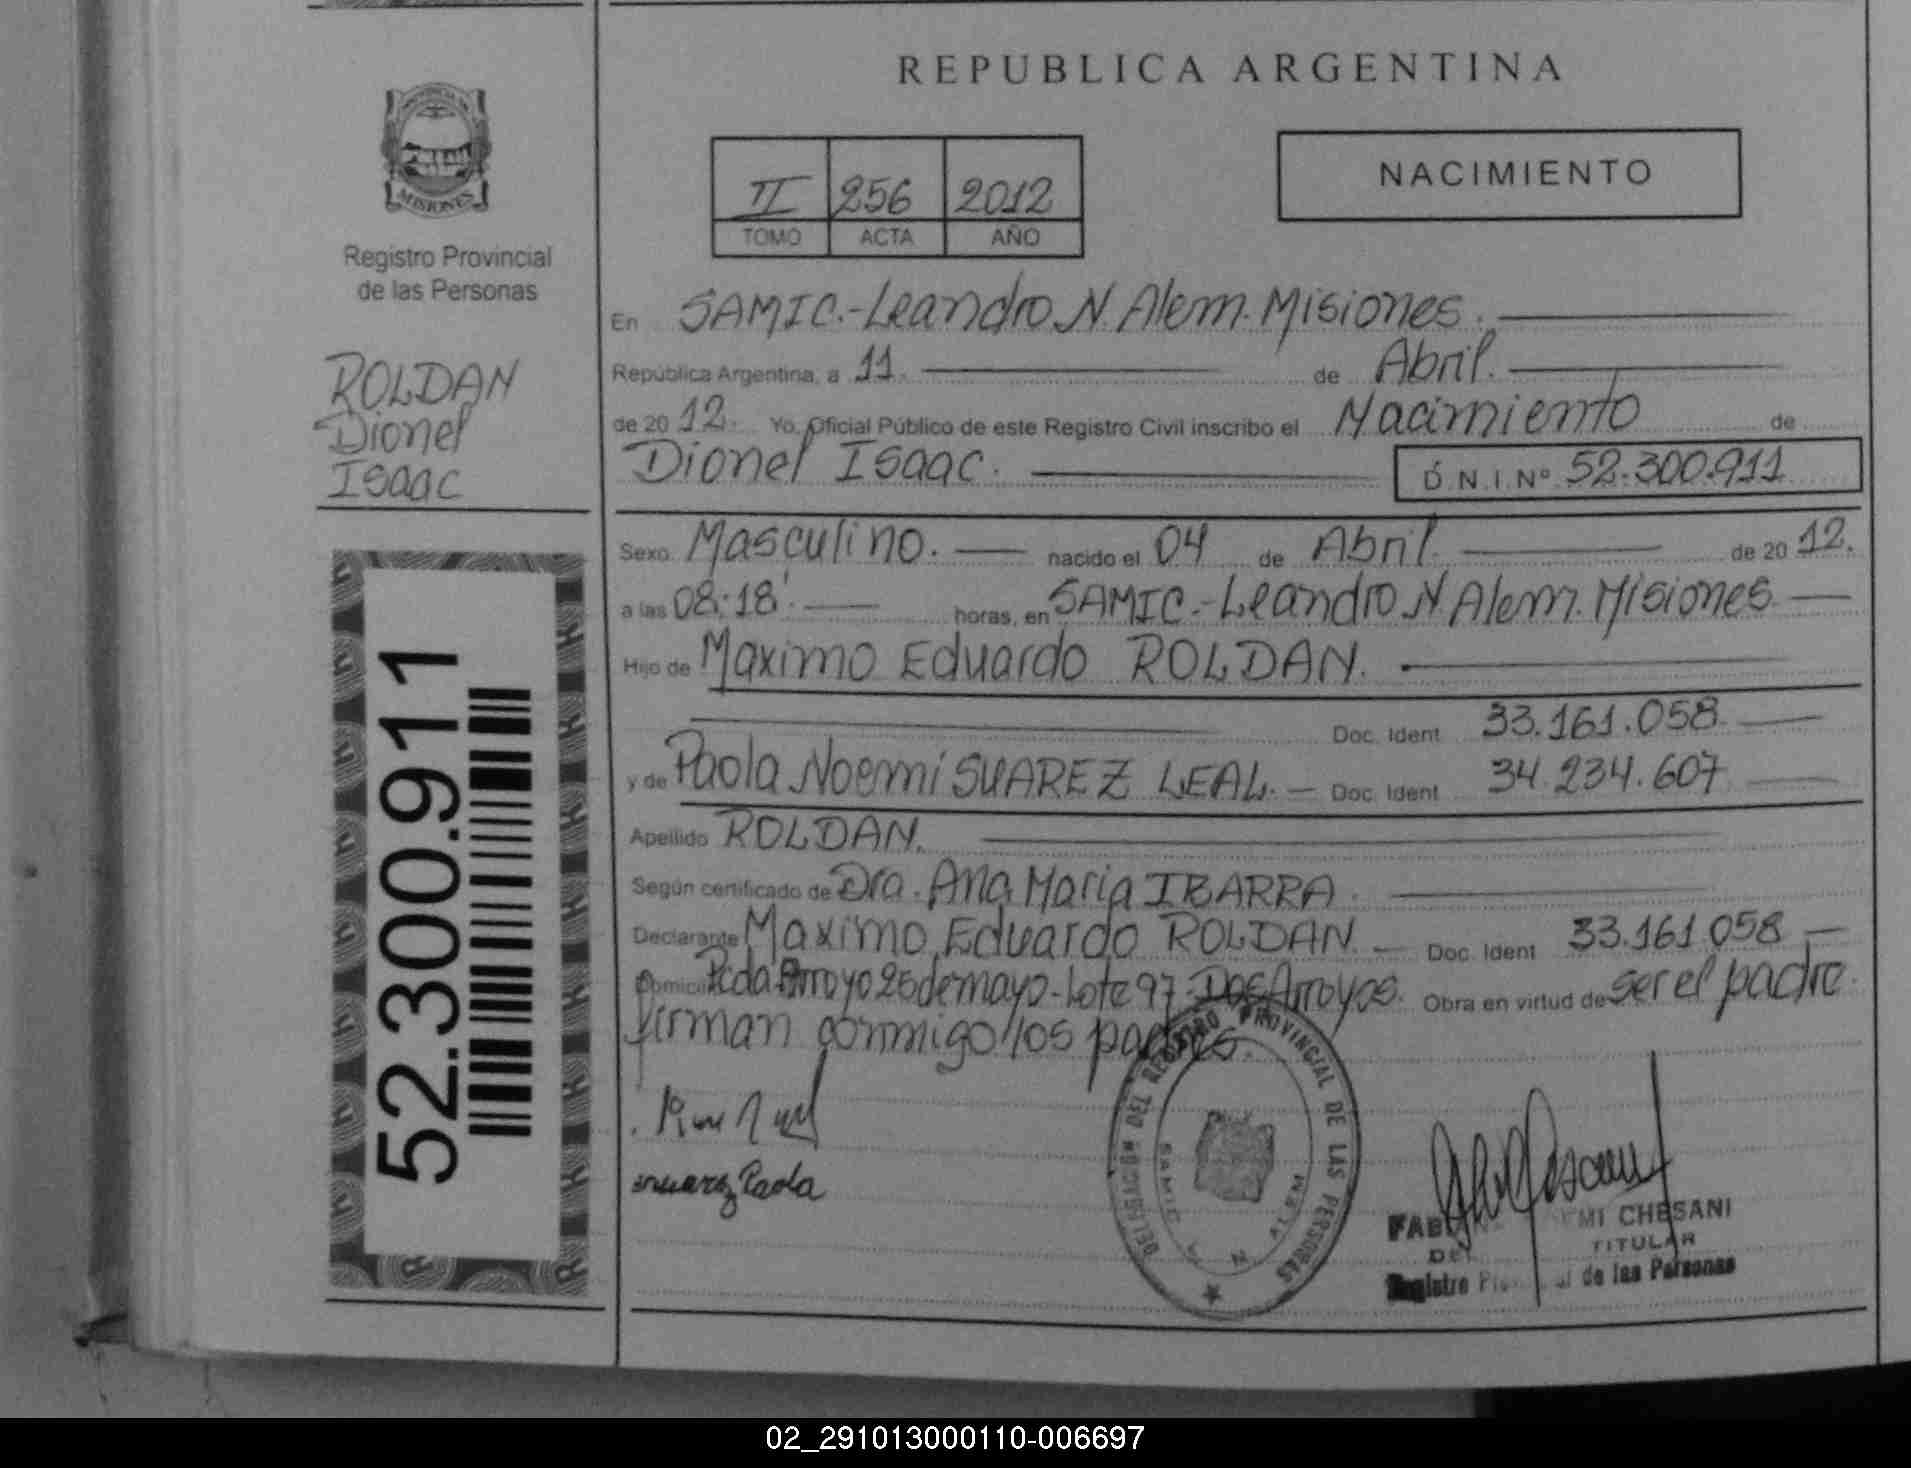 REPUBLICA ARGENTINA
PROVINCIA DE
MISIONES
Registro Provincial
de las Personas
II 256 2012
TOMO ACTA AÑO
NACIMIENTO
ROLDAN
Dionel
Isaac
52.300.911
En SAMIC.-Leandro N. Alem. Misiones.
República Argentina, a 11. de Abril.
de 20 12. Yo, Oficial Público de este Registro Civil inscribo el Nacimiento de
Dionel Isaac. D.N.I.Nº 52.300.911
Sexo Masculino. nacido el 04 de Abril. de 20 12.
a las 08:18'. horas, en SAMIC.-Leandro N Alem. Misiones
Hijo de Maximo Eduardo ROLDAN.
Doc. Ident 33.161.058.
y de Paola Noemi SUAREZ LEAL. Doc. Ident 34.234.607
Apellido ROLDAN.
Según certificado de Dra. Ana Maria IBARRA.
Declarante Maximo Eduardo ROLDAN. Doc. Ident 33.161.058
Domicilio Pcda. Arroyo 25 de mayo-Lote 97-Dos Arroyos. Obra en virtud de ser el padre.
firman conmigo los padres.
suarez Paola
DELEGACION DEL REGISTRO PROVINCIAL DE LAS PERSONAS
SAMIC L. N. ALEM
CHESANI
TITULAR
Registro de las Personas
02_291013000110-006697